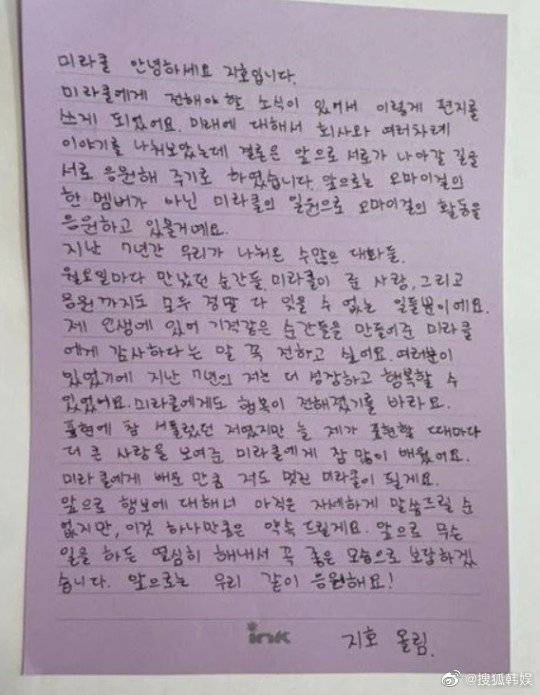 미라클 안녕하세요 지호입니다.
미라클에게 전해야 할 소식이 있어서 이렇게 편지를
쓰게 되었어요. 미래에 대해서 회사와 여러차례
이야기를 나눠보았는데 결론은 앞으로 서로가 나아갈 길을
서로 응원해 주기로 하였습니다. 앞으로는 오마이걸의
한 멤버가 아닌 미라클의 일원으로 오마이걸의 활동을
응원하고 있을거예요.
지난 7년간 우리가 나눠온 수많은 대화들.
월요일마다 만났던 순간들, 미라클이 준 사랑, 그리고
응원까지도 모두 정말 다 잊을 수 없는 일들뿐이에요.
제 인생에 있어 기적같은 순간들을 만들어준 미라클
에게 감사하다는 말 꼭 전하고 싶어요. 여러분이
있었기에 지난 7년의 저는 더 성장하고 행복할 수
있었어요. 미라클에게도 행복이 전해졌기를 바라요.
표현에 참 서툴렀던 저였지만 늘 제가 표현할 때마다
더 큰 사랑을 보여준 미라클에게 참 많이 배웠어요.
미라클에게 배운 만큼 저도 멋진 미라클이 될게요.
앞으로 행보에 대해서 아직은 자세하게 말씀드릴 순
없지만, 이것 하나만큼은 약속 드릴게요. 앞으로 무슨
일을 하든 열심히 해내서 꼭 좋은 모습으로 보답하겠
습니다. 앞으로는 우리 같이 응원해요!
ink
지호 올림.
@搜狐韩娱